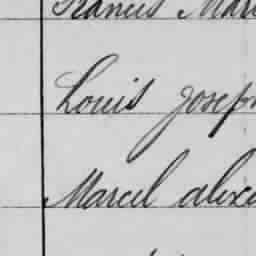 Francis Mari
Louis Joseph
Marcel alexa